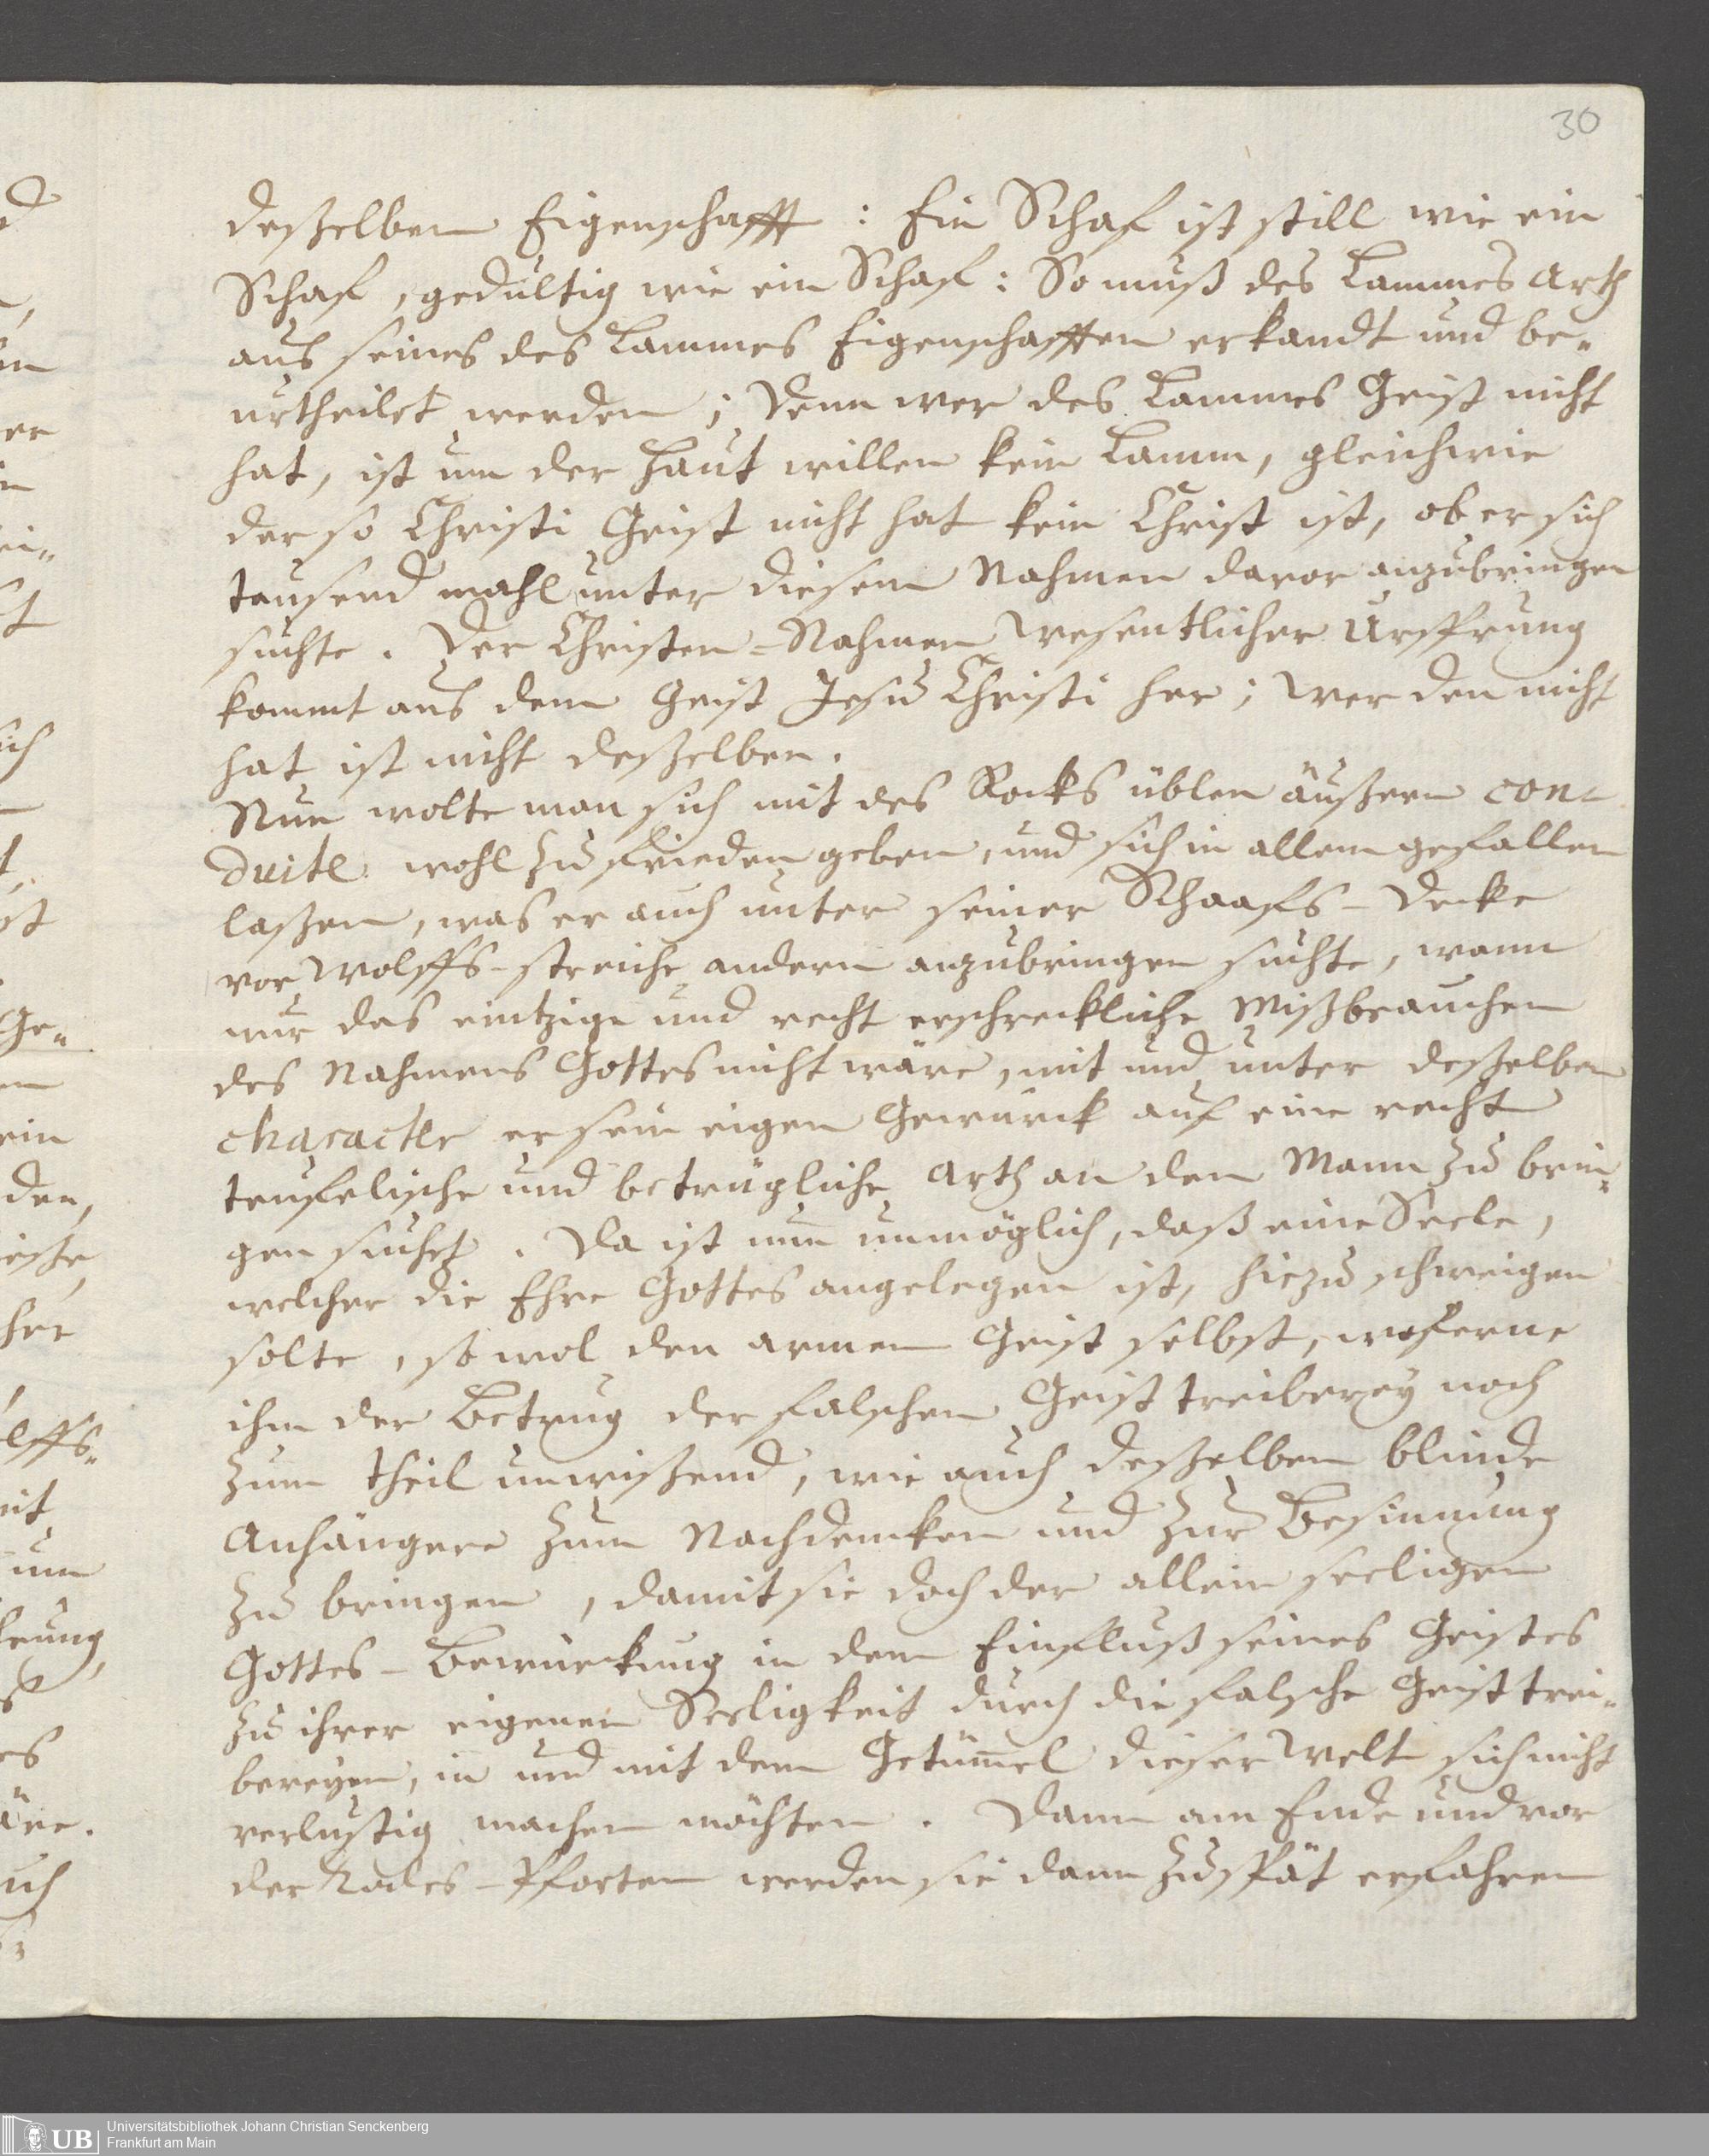 30
deßelben Eigenschafft : Ein Schaf ist still wie ein
Schaf, gedultig wie ein Schaf : So muß des Lammes Arth
aus seines des Lammes Eigenschafften erkandt und be-
urtheilet werden ; Denn wer des Lammes Geist nicht
hat, ist um der Haut willen kein Lamm, gleichwie
der so Christi Geist nicht hat kein Christ ist, ob er sich
tausend mahl unter diesem Nahmen davor anzubringen
suchte. Der Christen-Nahmen wesentlicher Ursprung
kommt aus dem Geist Jesu Christi her ; Wer den nicht
hat ist nicht deßelben.
Nun wolte man sich mit des Rocks üblen äußern con-
duite wohl zu frieden geben, und sich in allem gefallen
laßen, was er auch unter seiner Schaafs-Decke
vor Wolffs-streiche andern anzubringen suchte, wann
nur das eintzige und recht erschreckliche Mißbrauchen
des Nahmens Gottes nicht wäre, mit und unter deßelben
character er sein eigen Gewürck auf eine recht
teufelische und betrügliche Arth an den Mann zu brin-
gen suchet. Da ist nun unmöglich, daß eine Seele,
welcher die Ehre Gottes angelegen ist, hiezu schweigen
solte, so wol den armen Geist selbst, woferne
ihm der Betrug der falschen Geisttreiberey noch
zum theil unwißend, wie auch deßelben blinde
Anhängere zum Nachdencken und zur Besinnung
zu bringen, damit sie doch der allein seeligen
Gottes-Bewürckung in dem Einfluß seines Geistes
zu ihrer eigenen Seeligkeit durch die falsche Geisttrei-
bereyen, in und mit dem Getümel dieser Welt sich nicht
verlustig machen möchten. Dann am Ende und vor
der Todes-Pforten werden sie dann zu spät erfahren
UB Universitätsbibliothek Johann Christian Senckenberg
Frankfurt am Main